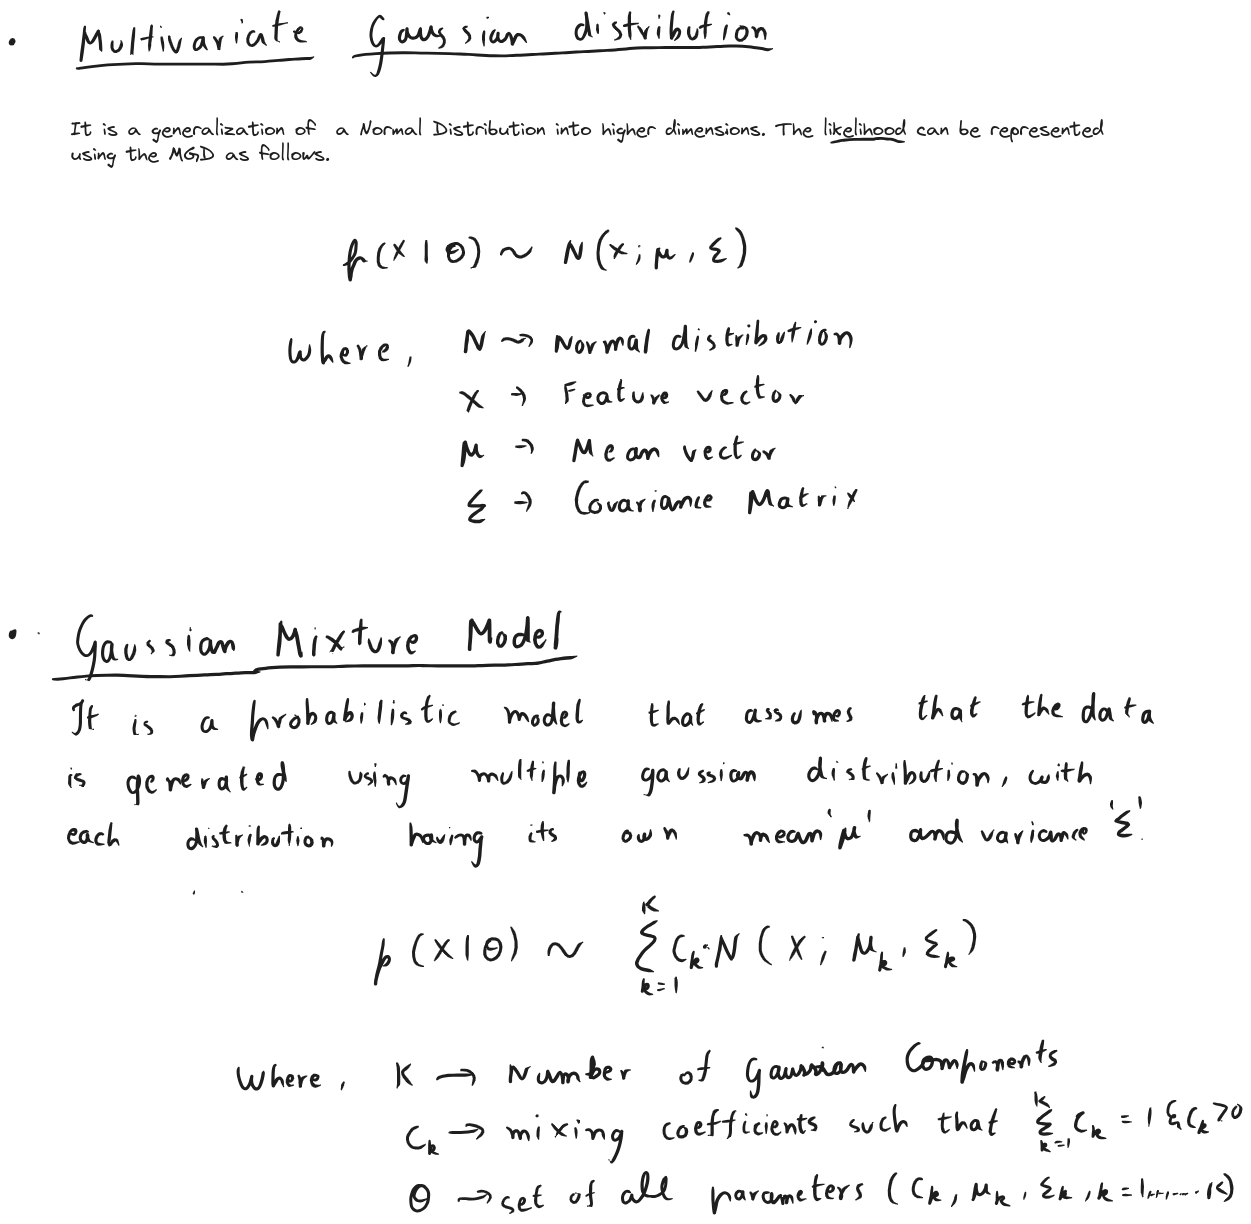 • Multivariate Gaussian distribution
It is a generalization of a Normal Distribution into higher dimensions. The likelihood can be represented
using the MGD as follows.
p(x | θ) ~ N(x; μ, Σ)
where, N → Normal distribution
x → Feature vector
μ → Mean vector
Σ → Covariance Matrix
• Gaussian Mixture Model
It is a probabilistic model that assumes that the data
is generated using multiple gaussian distribution, with
each distribution having its own mean 'μ' and variance 'Σ'.
p(x|θ) ~ Σ_{k=1}^{K} C_k · N(x; μ_k, Σ_k)
Where, K → Number of Gaussian Components
C_k → mixing coefficients such that Σ_{k=1}^{K} C_k = 1 & C_k > 0
θ → set of all parameters (C_k, μ_k, Σ_k, k = 1,....... K)